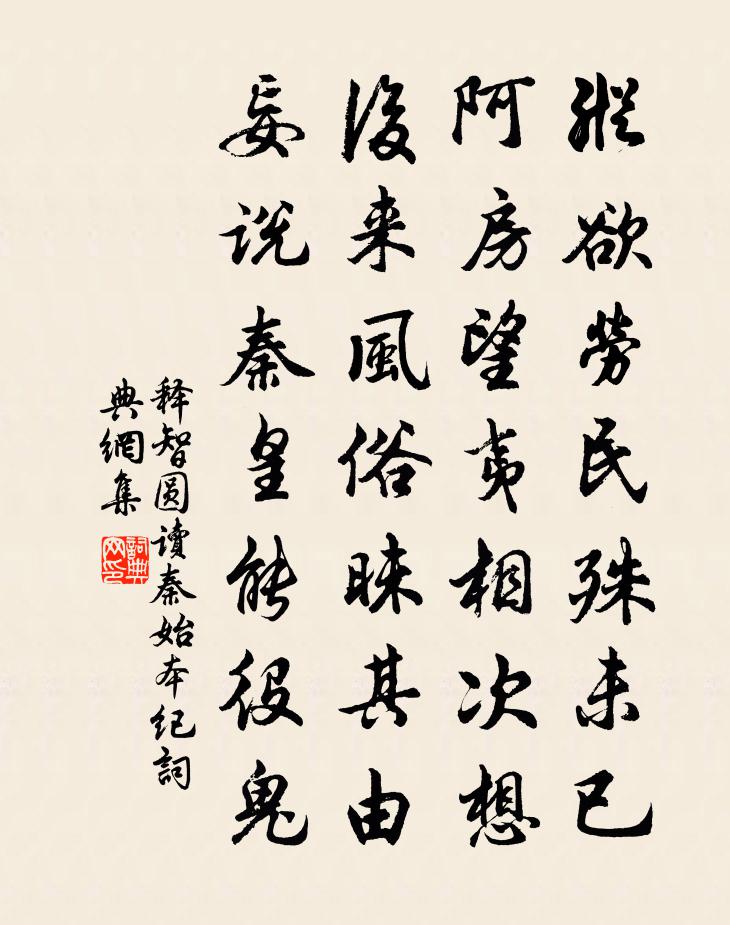 縱欲勞民殊未已
阿房望夷相次想
後来風俗昧其由
妄说秦皇能役鬼
释智圆讀秦始本纪詞
典網集
詞典
网印